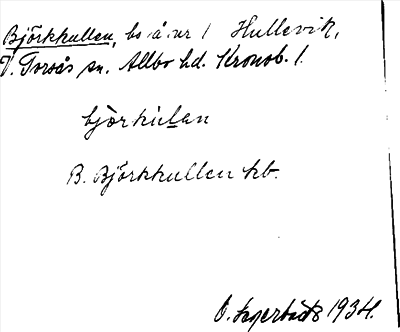 Björkhullen, bs å nr 1 Hullevik,
V. Torsås sn. Allbo hd. Kronob. l.
bjòrkùlan
B. Björkhullen hb.
O. Lagerbäck 1934.